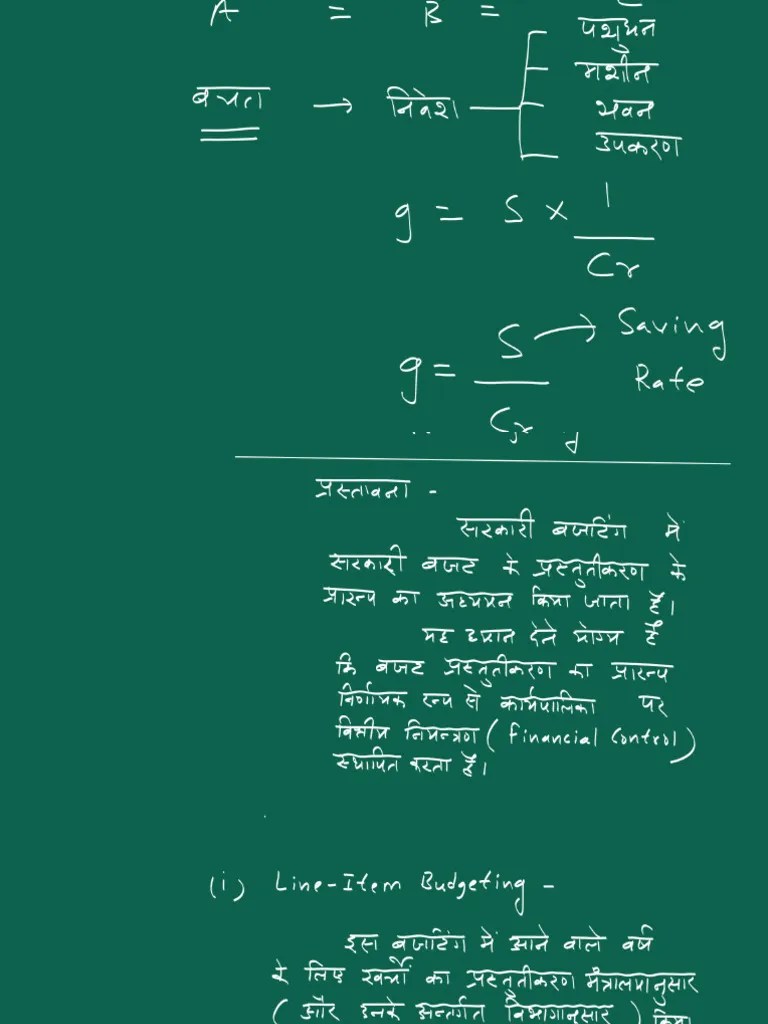 A = B =
पशुधन
मशीन
बचत → निवेश
भवन
उपकरण
g = S × 1/Cr
g = S/Cr → Saving Rate
प्रस्तावना -
सरकारी बजटिंग में
सरकारी बजट के प्रस्तुतीकरण के
प्रारूप का अध्ययन किया जाता है।
यह ध्यान देने योग्य है
कि बजट प्रस्तुतीकरण का प्रारूप
निर्णायक रूप से कार्यपालिका पर
वित्तीय नियन्त्रण (Financial Control)
स्थापित करता है।
(i) Line-Item Budgeting -
इस बजटिंग में आने वाले वर्ष
के लिए खर्चों का प्रस्तुतीकरण मंत्रालयानुसार
(और उनके अन्तर्गत विभागानुसार) किया